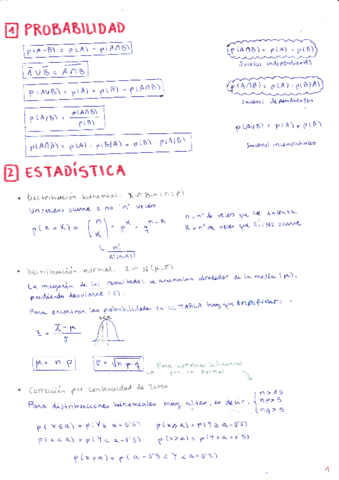 1 PROBABILIDAD
p(A-B) = p(A) - p(A∩B)
p(A∩B) = p(A) · p(B)
Sucesos independientes
A∪B = A∩B
p(A∪B) = p(A) + p(B) - p(A∩B)
p(A∩B) = p(A) · p(B/A)
Sucesos dependientes
p(A/B) = p(A∩B) / p(B)
p(A∪B) = p(A) + p(B)
Sucesos incompatibles
p(A∩B) = p(A) · p(B/A) = p(B) · p(A/B)
2 ESTADÍSTICA
• Distribución binomial: X ~ Bin(n;p)
Un suceso ocurre o no "n" veces.
p(X=K) = (n K) · p^K · q^n-K
n = nº de veces que se intenta
K = nº de veces que sí ocurre
n! / K!(n-K)!
• Distribución normal: X ~ N(μ,σ)
La mayoría de los resultados se acumulan alrededor de la media (μ),
pudiendo desviarse (σ).
Para encontrar las probabilidades en la TABLA hay que tipificar:
Z = X-μ / σ
μ = n · p
σ = √n·p·q
Para aproximar la binomial
por la normal
• Corrección por continuidad de Yates
Para distribuciones binomiales muy altas, es decir
n>10
np>5
nq>5
p(x≤a) = p(Y≤a+0'5)
p(x≥a) = p(Y≥a-0'5)
p(x<a) = p(Y≤a-0'5)
p(x>a) = p(Y≥a+0'5)
p(x=a) = p(a-0'5≤Y≤a+0'5)
1